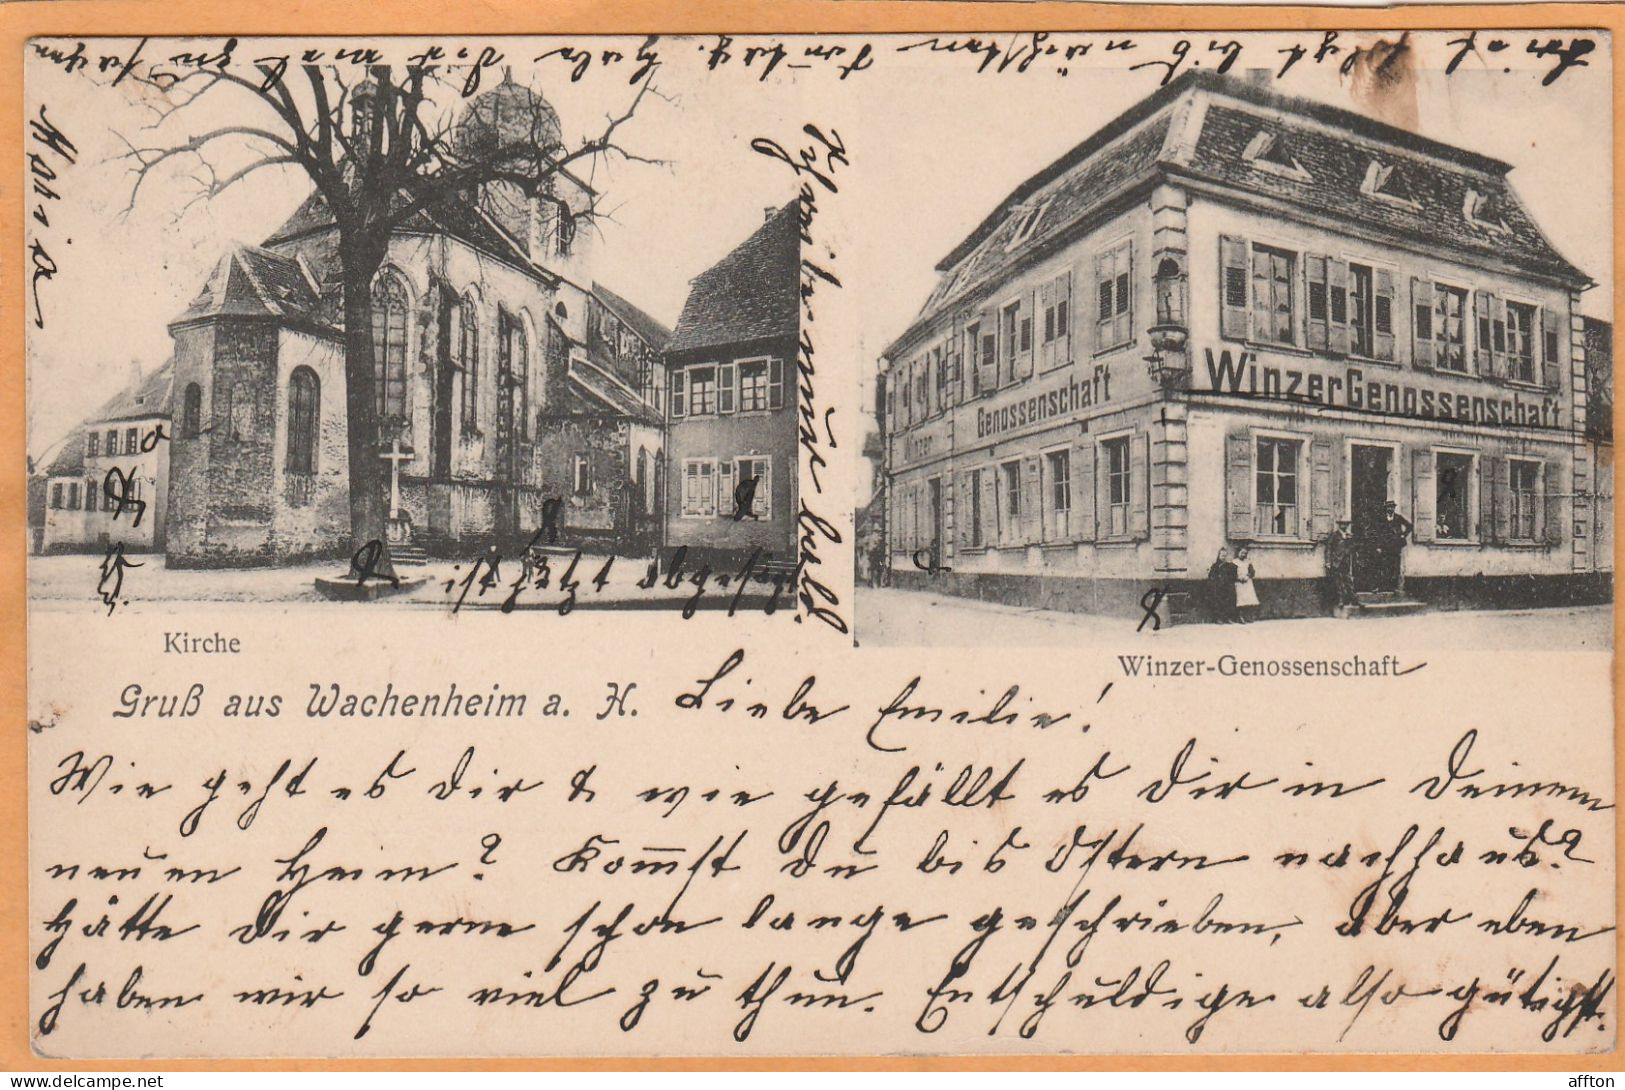 Maria
Kirche
ist jetzt abgesagt
Winzer
Genossenschaft
WinzerGenossenschaft
Winzer-Genossenschaft
Gruß aus Wachenheim a. H. Liebe Emilie!
Wie geht es Dir & wie gefällt es Dir in Deinem
neuen Heim? Kommst Du bis Ostern nachhaus?
Hätte Dir gerne schon lange geschrieben, aber eben
haben wir so viel zu thun. Entschuldige also gütigst.
bis nächsten
bald.
affton